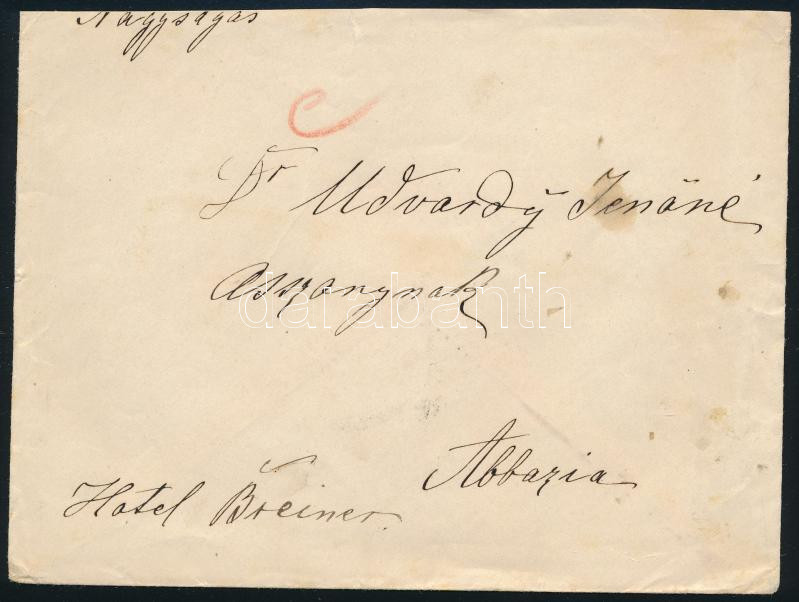 Nagyságas
Dr Udvardÿ Jenőné
asszonynak
darabanth
Abbazia
Hotel Breiner